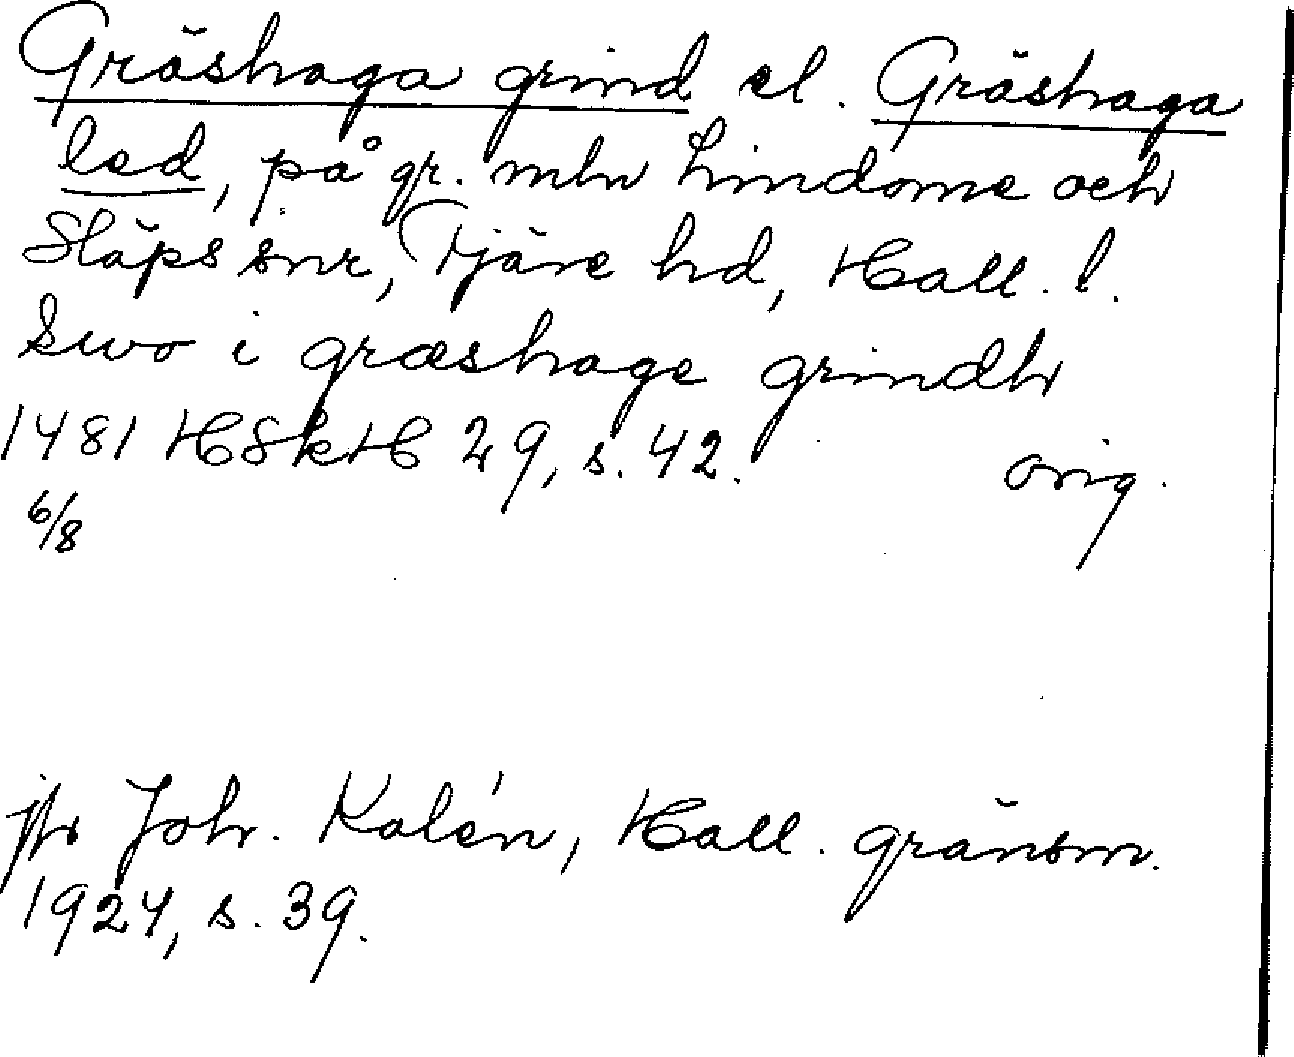 Gräshaga grind el. Gräshaga
led, på gr. mln Lindome och
Släps snr, Fjäre hd, Hall. l.
Swo i græshage grindh
1481 HSkH 29, s. 42. orig.
6/8
jfr Joh. Kalén, Hall. gränsm.
1924, s. 39.